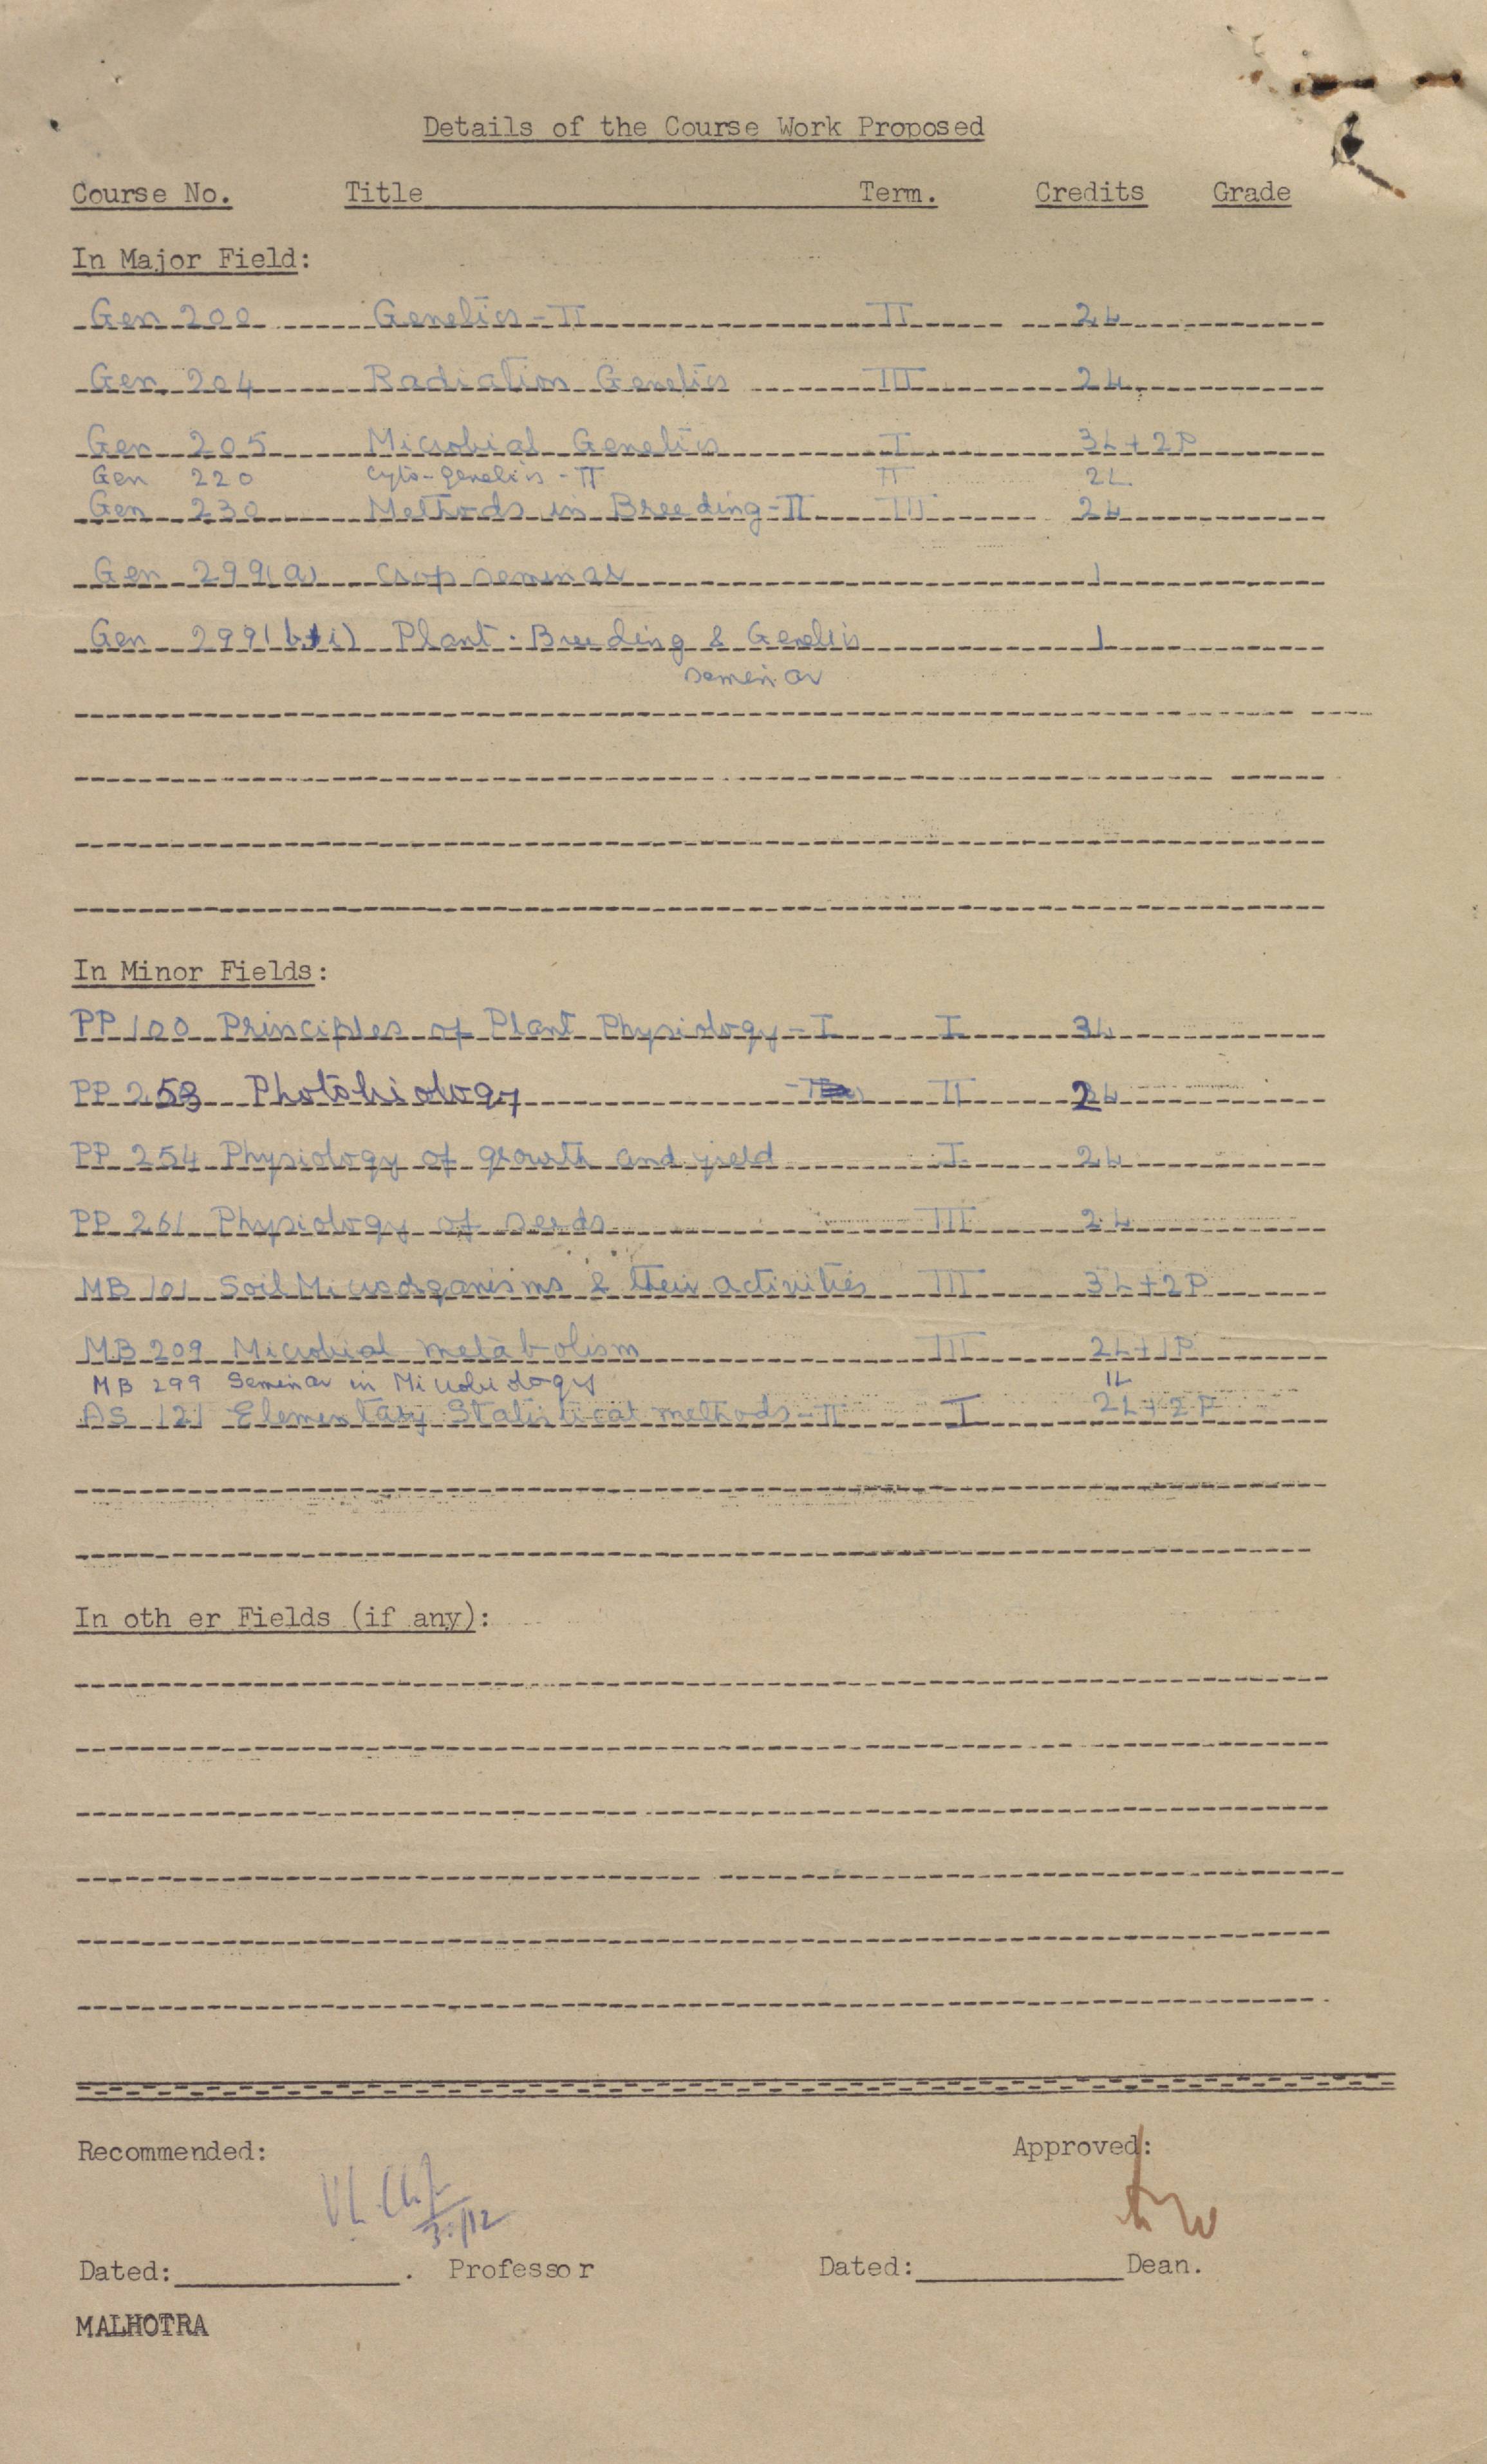 Details of the Course Work Proposed
Course No. Title Term. Credits Grade
In Major Field:
Gen 200 Genetics - II II 2L
Gen 204 Radiation Genetics III 2L
Gen 205 Microbial Genetics I 3L+2P
Gen 220 Cyto-genetics - II II 2L
Gen 230 Methods in Breeding - II III 2L
Gen 299(a) Crop seminar 1
Gen 299 Plant Breeding & Genetics 1
seminar
In Minor Fields:
PP 100 Principles of Plant Physiology - I I 3L
PP 253 Photobiology II 2L
PP 254 Physiology of growth and yield I 2L
PP 261 Physiology of seeds III 2L
MB 101 Soil Microorganisms & their activities III 3L+2P
MB 209 Microbial metabolism III 2L+1P
MB 299 Seminar in Microbiology 1L
AS 121 Elementary Statistical methods - II I 2L+2P
In oth er Fields (if any):
Recommended: Approved:
30/12
Dated: . Professor Dated: Dean.
MALHOTRA